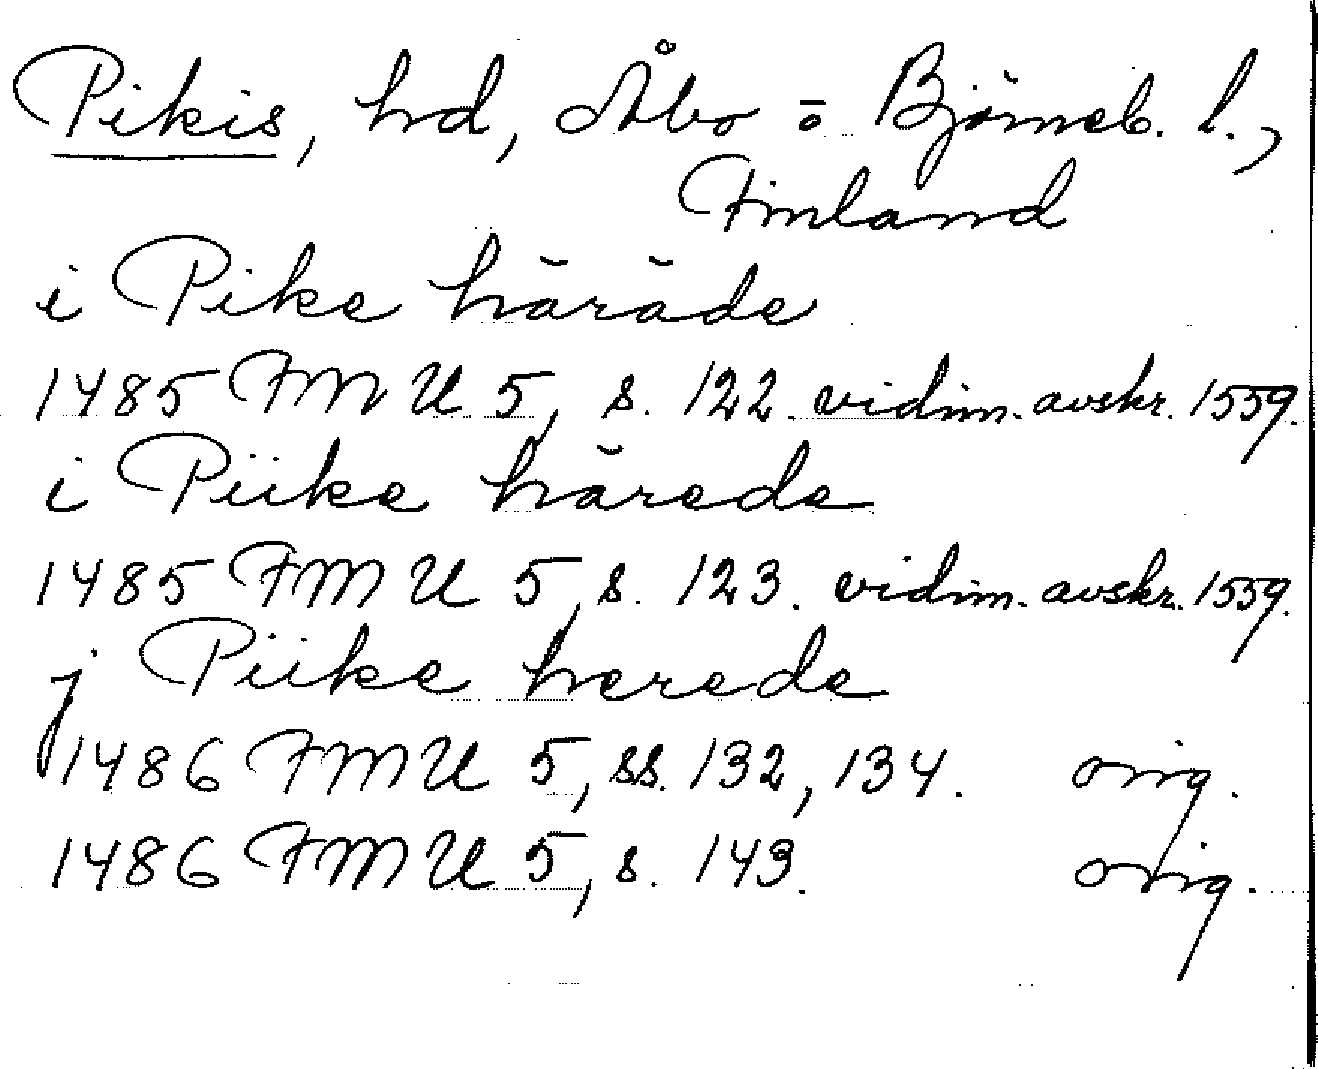 Pikis, hd, Åbo o. Björneb. l.,
Finland
i Pike häräde
1485 FMU 5, s. 122. vidim. avskr. 1559.
i Piike härede
1485 FMU 5, s. 123. vidim. avskr. 1559.
j Piike herede
1486 FMU 5, ss. 132, 134. orig.
1486 FMU 5, s. 143. orig.